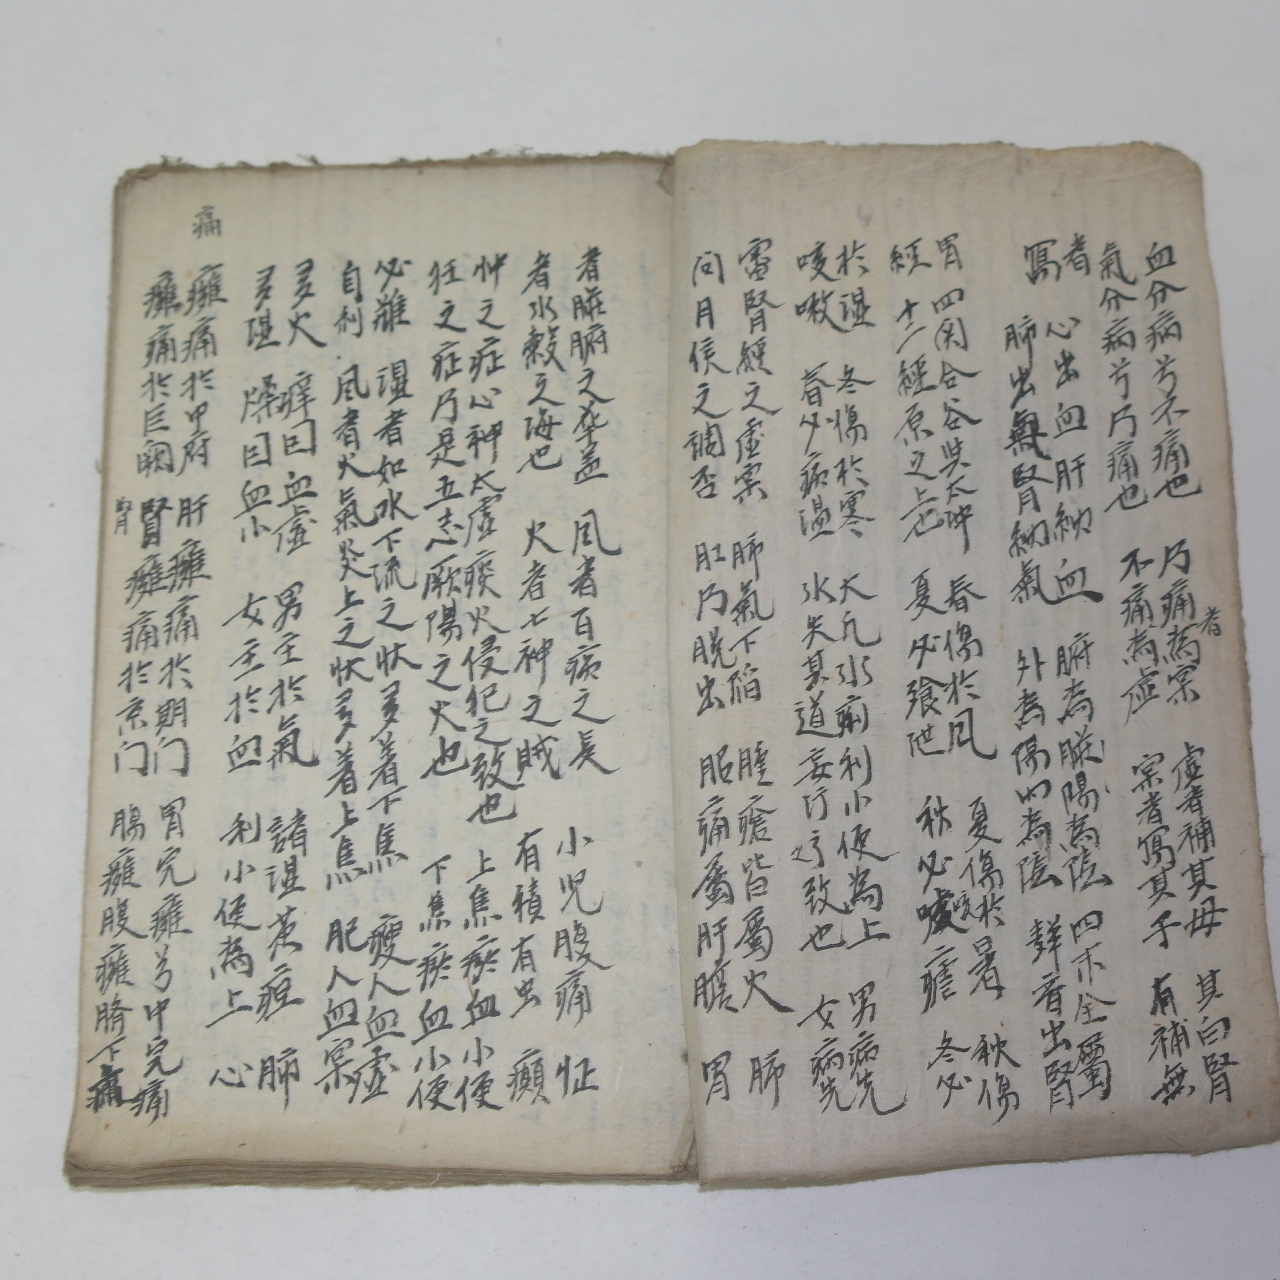 血分病兮不痛也 乃痛者為宲 虛者補其母 其曰腎
氣分病兮乃痛也 不痛為虛 宲者寫其子 有補無
者 心出血肝納血 腑為臟陽為陰 四末全屬
寫 肺出氣腎納氣 外為陽內為陰 聲音出腎
胃 四関合谷與太冲 春傷於風 夏傷於暑 秋傷
經 十二經原之上也 夏必飱泄 秋必痎瘧 冬必
於濕 冬傷於寒 大凡水痢利小便為上 男病先
咳嗽 春必病溫 水失其道妄行乎致也 女病先
審腎經之虛宲 肺氣下陷 腫瘡皆屬火 肺
問月侯之調否 肛乃脫出 眼痛屬肝膽 胃
者臟腑之華盖 風者百病之長 小児腹痛 怔
者水糓之海也 火者七神之賊 有積有虫 癲
忡之症心神太虛痰火侵犯之致也 上焦瘀血小便
狂之症乃是五志厥陽之火也 下焦瘀血小便
必難 濕者如水下流之狀多着下焦 瘦人血虛
自利 風者火氣炎上之狀多着上焦 肥人血宲
多火 痒曰血虛 男主於氣 諸濕黃疸 肺
多濕 燥曰血小 女主於血 利小便為上 心
痛
癰痛於中府 肝癰痛於期门 胃完癰兮中完痛
癰痛於巨闕 腎癰痛於京门 腸癰腹癰臍下痛
腎